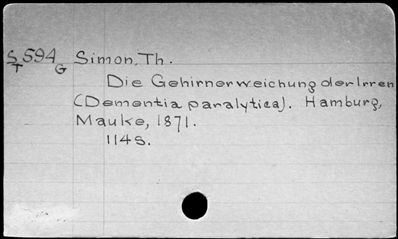 S594 Simon, Th.
T G
Die Gehirnerweichung der Irren
(Dementia paralytica). Hamburg,
Mauke, 1871.
114S.